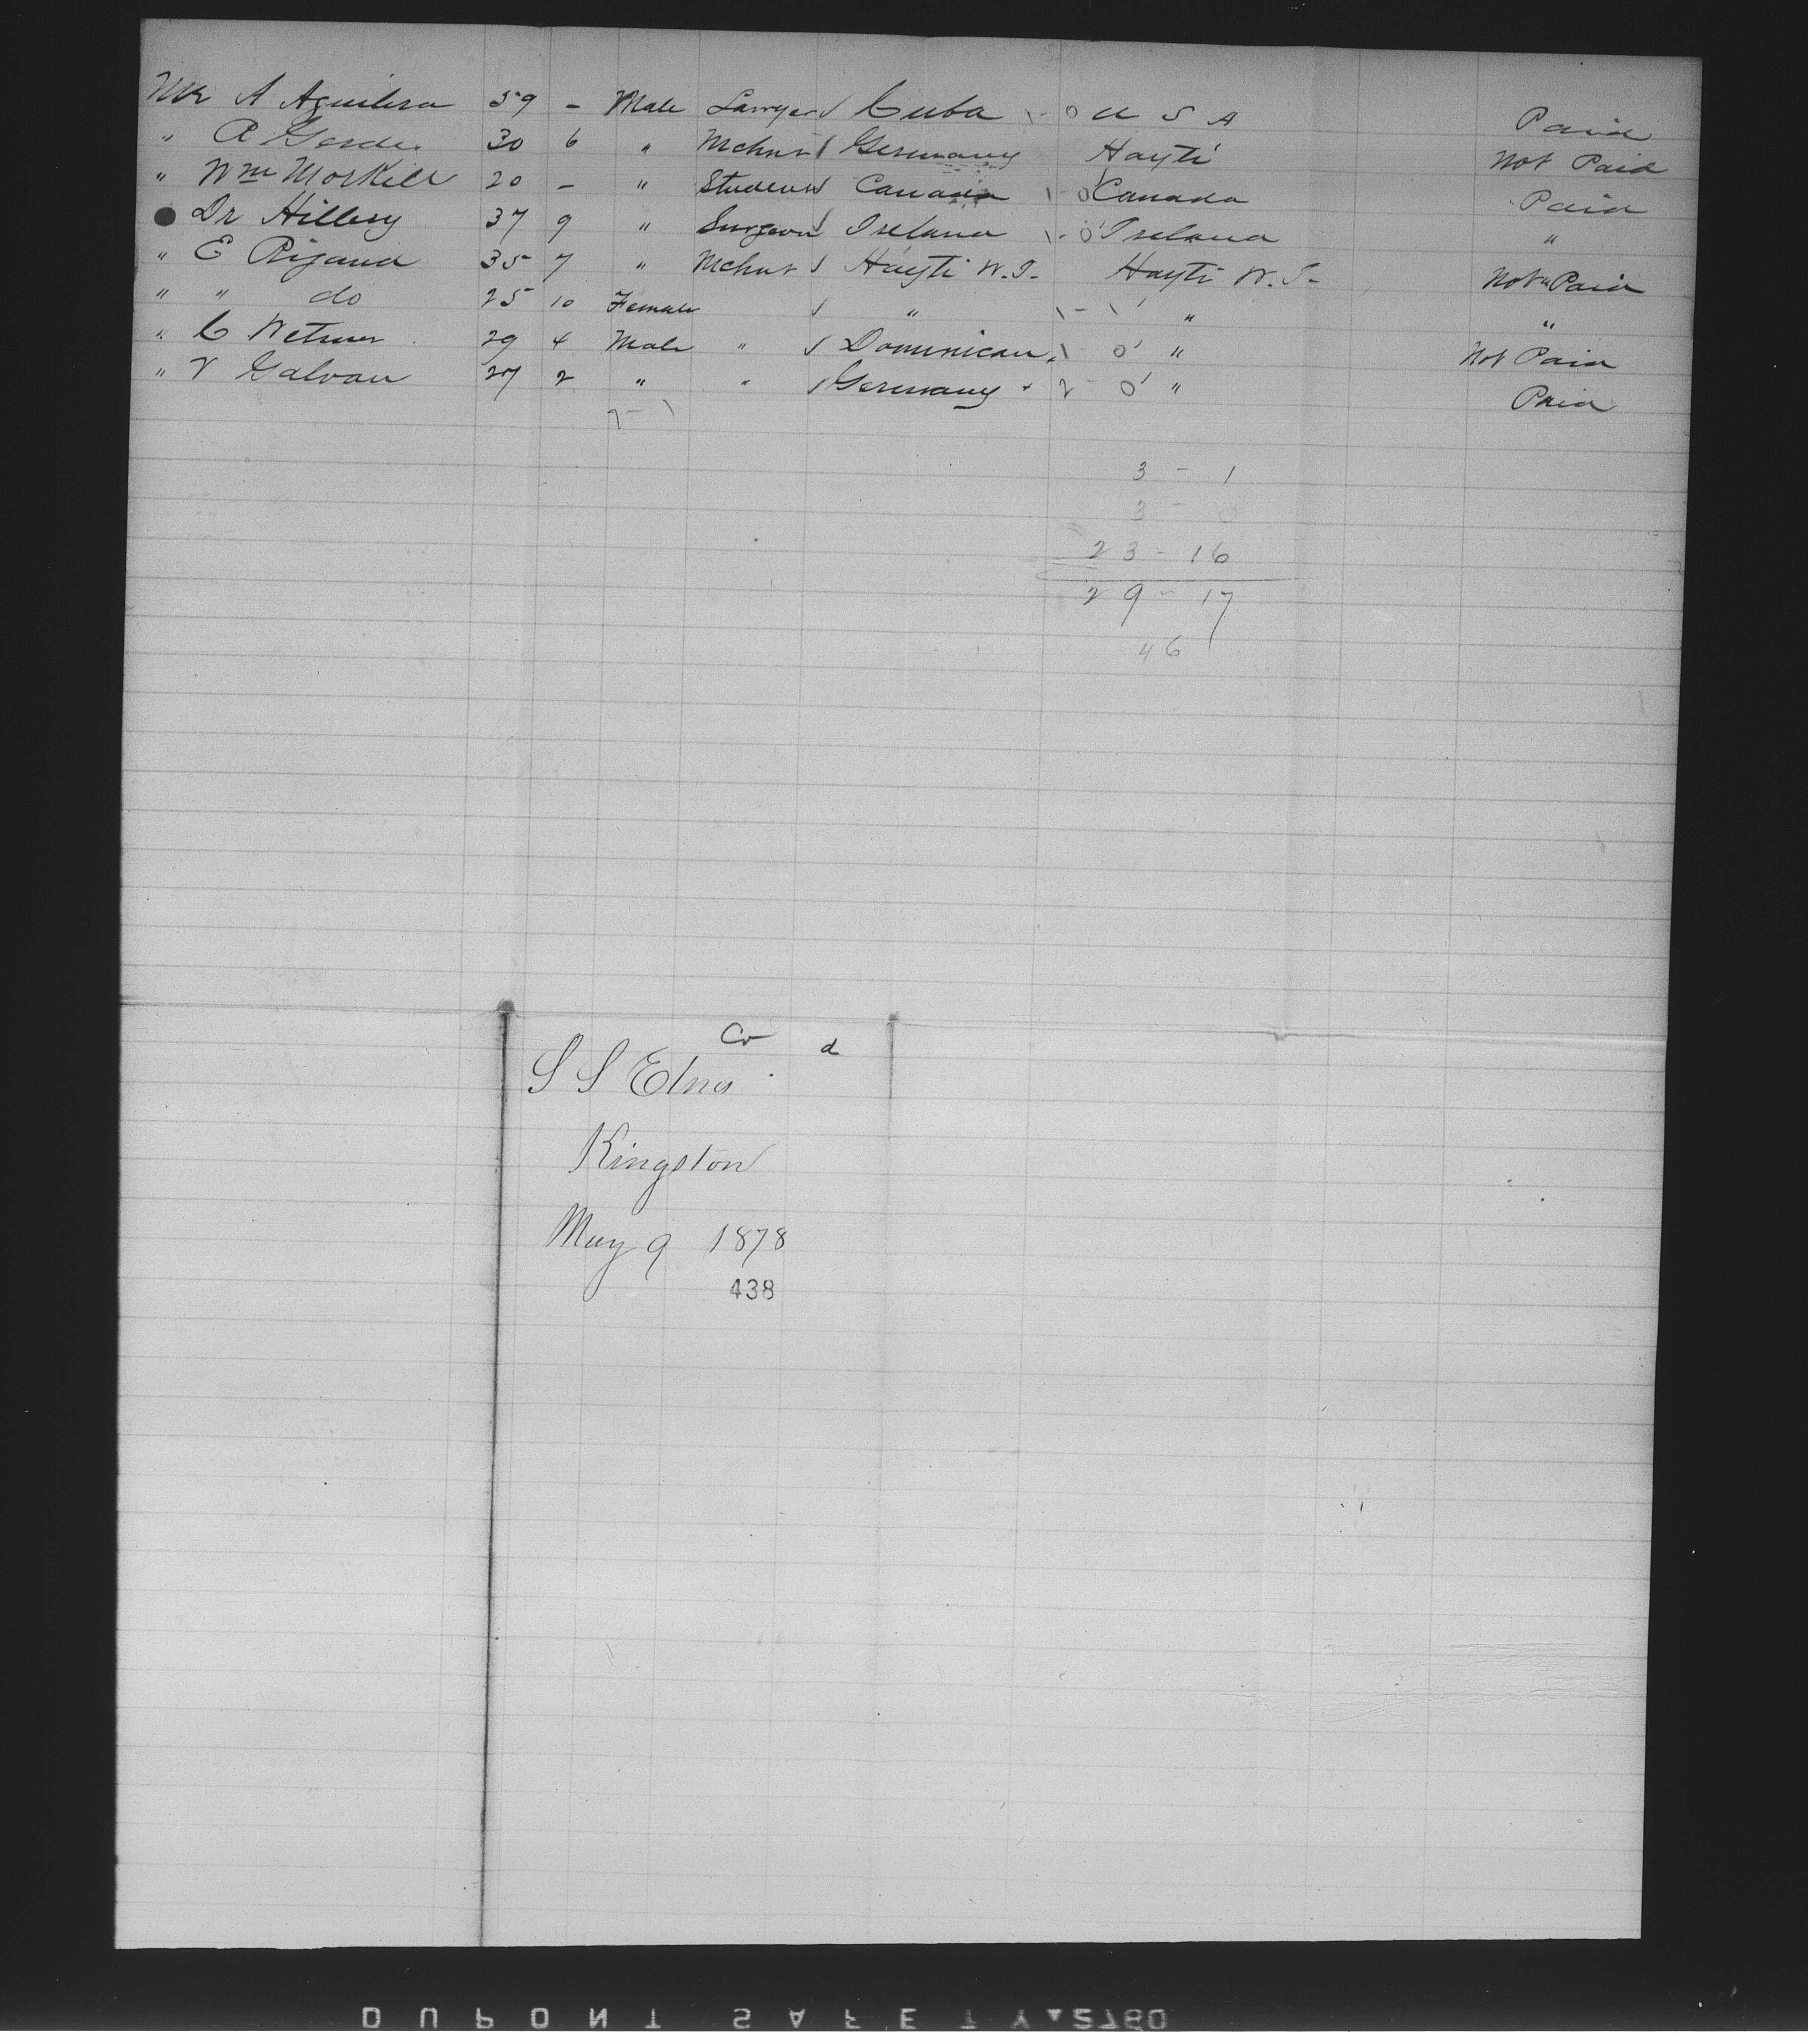 Mr A Aguilera 59 - Male Lawyer Cuba 1-0 U S A Paid
" R Gerdes 30 6 " Mchnt Germany Hayti Not Paid
" Wm Morkill 20 - " Student Canada 1-0 Canada Paid
Dr Hillery 37 9 " Surgeon Ireland 1-0 Ireland "
" E Rigaud 35 7 " Mchnt Hayti W.I. Hayti W.I. Not Paid
" " do 25 10 Female " 1-1 " "
" C 29 4 Male " Dominican 1 0 " Not Paid
" V Galvan 27 2 " " Germany 2-0 " Paid
7-1
3 - 1
3 - 0
23 - 16
29 - 17
46
Cr d
S S Etna
Kingston
May 9 1878
438
DUPONT SAFETY 2760